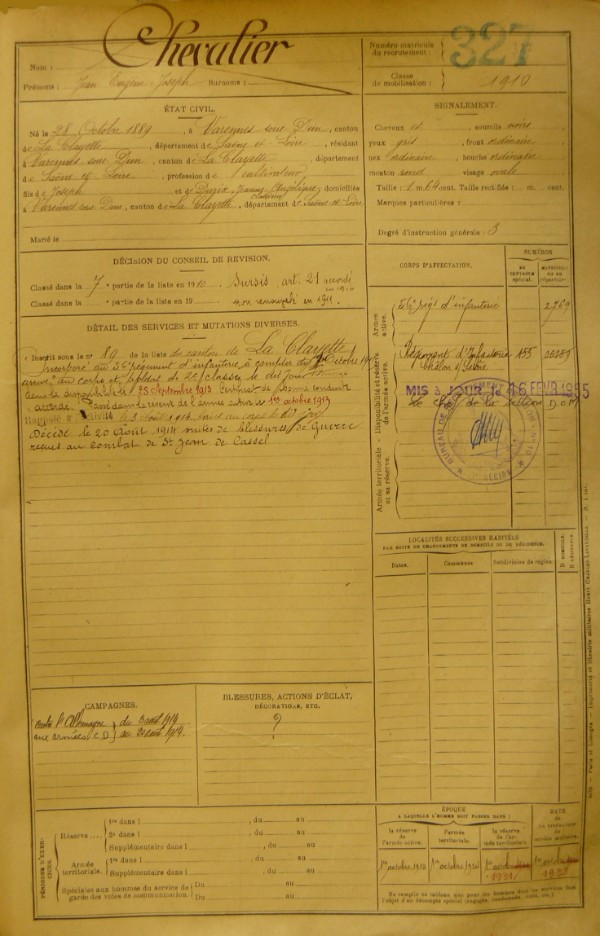 Nom : Chevalier
Prénoms : Jean Eugène Joseph Surnoms :
Numéro matricule du recrutement : 327
Classe de mobilisation : 1910
ÉTAT CIVIL.
Né le 28 Octobre 1889, à Varennes sous Dun, canton
de La Clayette, département de Saône et Loire, résidant
à Varennes sous Dun, canton de La Clayette, département
de Saône et Loire, profession de cultivateur,
fils de Joseph et de domiciliés
à Varennes sous Dun, canton de La Clayette, département de Saône et Loire
Marié le
SIGNALEMENT.
Cheveux et sourcils noirs
yeux gris, front ordinaire
nez ordinaire, bouche ordinaire
menton rond visage ovale
Taille : 1 m. 64 cent. Taille rectifiée : m. cent.
Marques particulières :
Degré d'instruction générale : 3
DÉCISION DU CONSEIL DE REVISION.
Classé dans la 7e partie de la liste en 1910 Sursis art. 21 accordé
en 1910
Classé dans la e partie de la liste en 19 non renouvelé en 1911.
DÉTAIL DES SERVICES ET MUTATIONS DIVERSES.
Inscrit sous le no 89 de la liste du canton de La Clayette
Incorporé au 56e régiment d'infanterie à compter du octobre 1911
arrivé au corps et soldat de 2e classe le dit jour
dans la disponibilité le 25 Septembre 1913 Certificat de bonne conduite
accordé. réserve de l'armée active le 1er octobre 1913
Rappelé à août 1914 au corps le dit jour
Décédé le 20 Août 1914 suites de blessures de Guerre
reçues au combat de St Jean de Bassel
CORPS D'AFFECTATION.
NUMÉROS
au contrôle spécial.
matricule ou au répertoire
Armée active.
56e régt d'infanterie 2769
Disponibilité et réserve de l'armée active.
Régiment d'Infanterie 155
Chalon s/ Saône
MIS à JOUR, le 16 FEVR 1935
Le Chef de la Section D.O.P.
Armée territoriale et sa réserve.
LOCALITÉS SUCCESSIVES HABITÉES
PAR SUITE DE CHANGEMENTS DE DOMICILE OU DE RÉSIDENCE.
Dates. Communes. Subdivision de région. D. domicile. R. résidence.
CAMPAGNES.
contre l'Allemagne du août 1914
aux armées (C.D.) au 20 août 1914.
BLESSURES, ACTIONS D'ÉCLAT,
DÉCORATIONS, ETC.
?
PÉRIODES D'EXERCICES.
Réserve
1re dans l , du au
2e dans l , du au
Supplémentaire dans l , du au
Armée territoriale.
1re dans l , du au
Supplémentaire dans l , du au
Spéciales aux hommes du service de garde des voies de communication. Du au
Du au
ÉPOQUE
À LAQUELLE L'HOMME DOIT PASSER DANS :
la réserve de l'armée active. l'armée territoriale. la réserve de l'armée territoriale.
DATE DE LA LIBÉRATION DU SERVICE MILITAIRE.
1er octobre 1913
1er octobre
1er octobre 1931
1er octobre